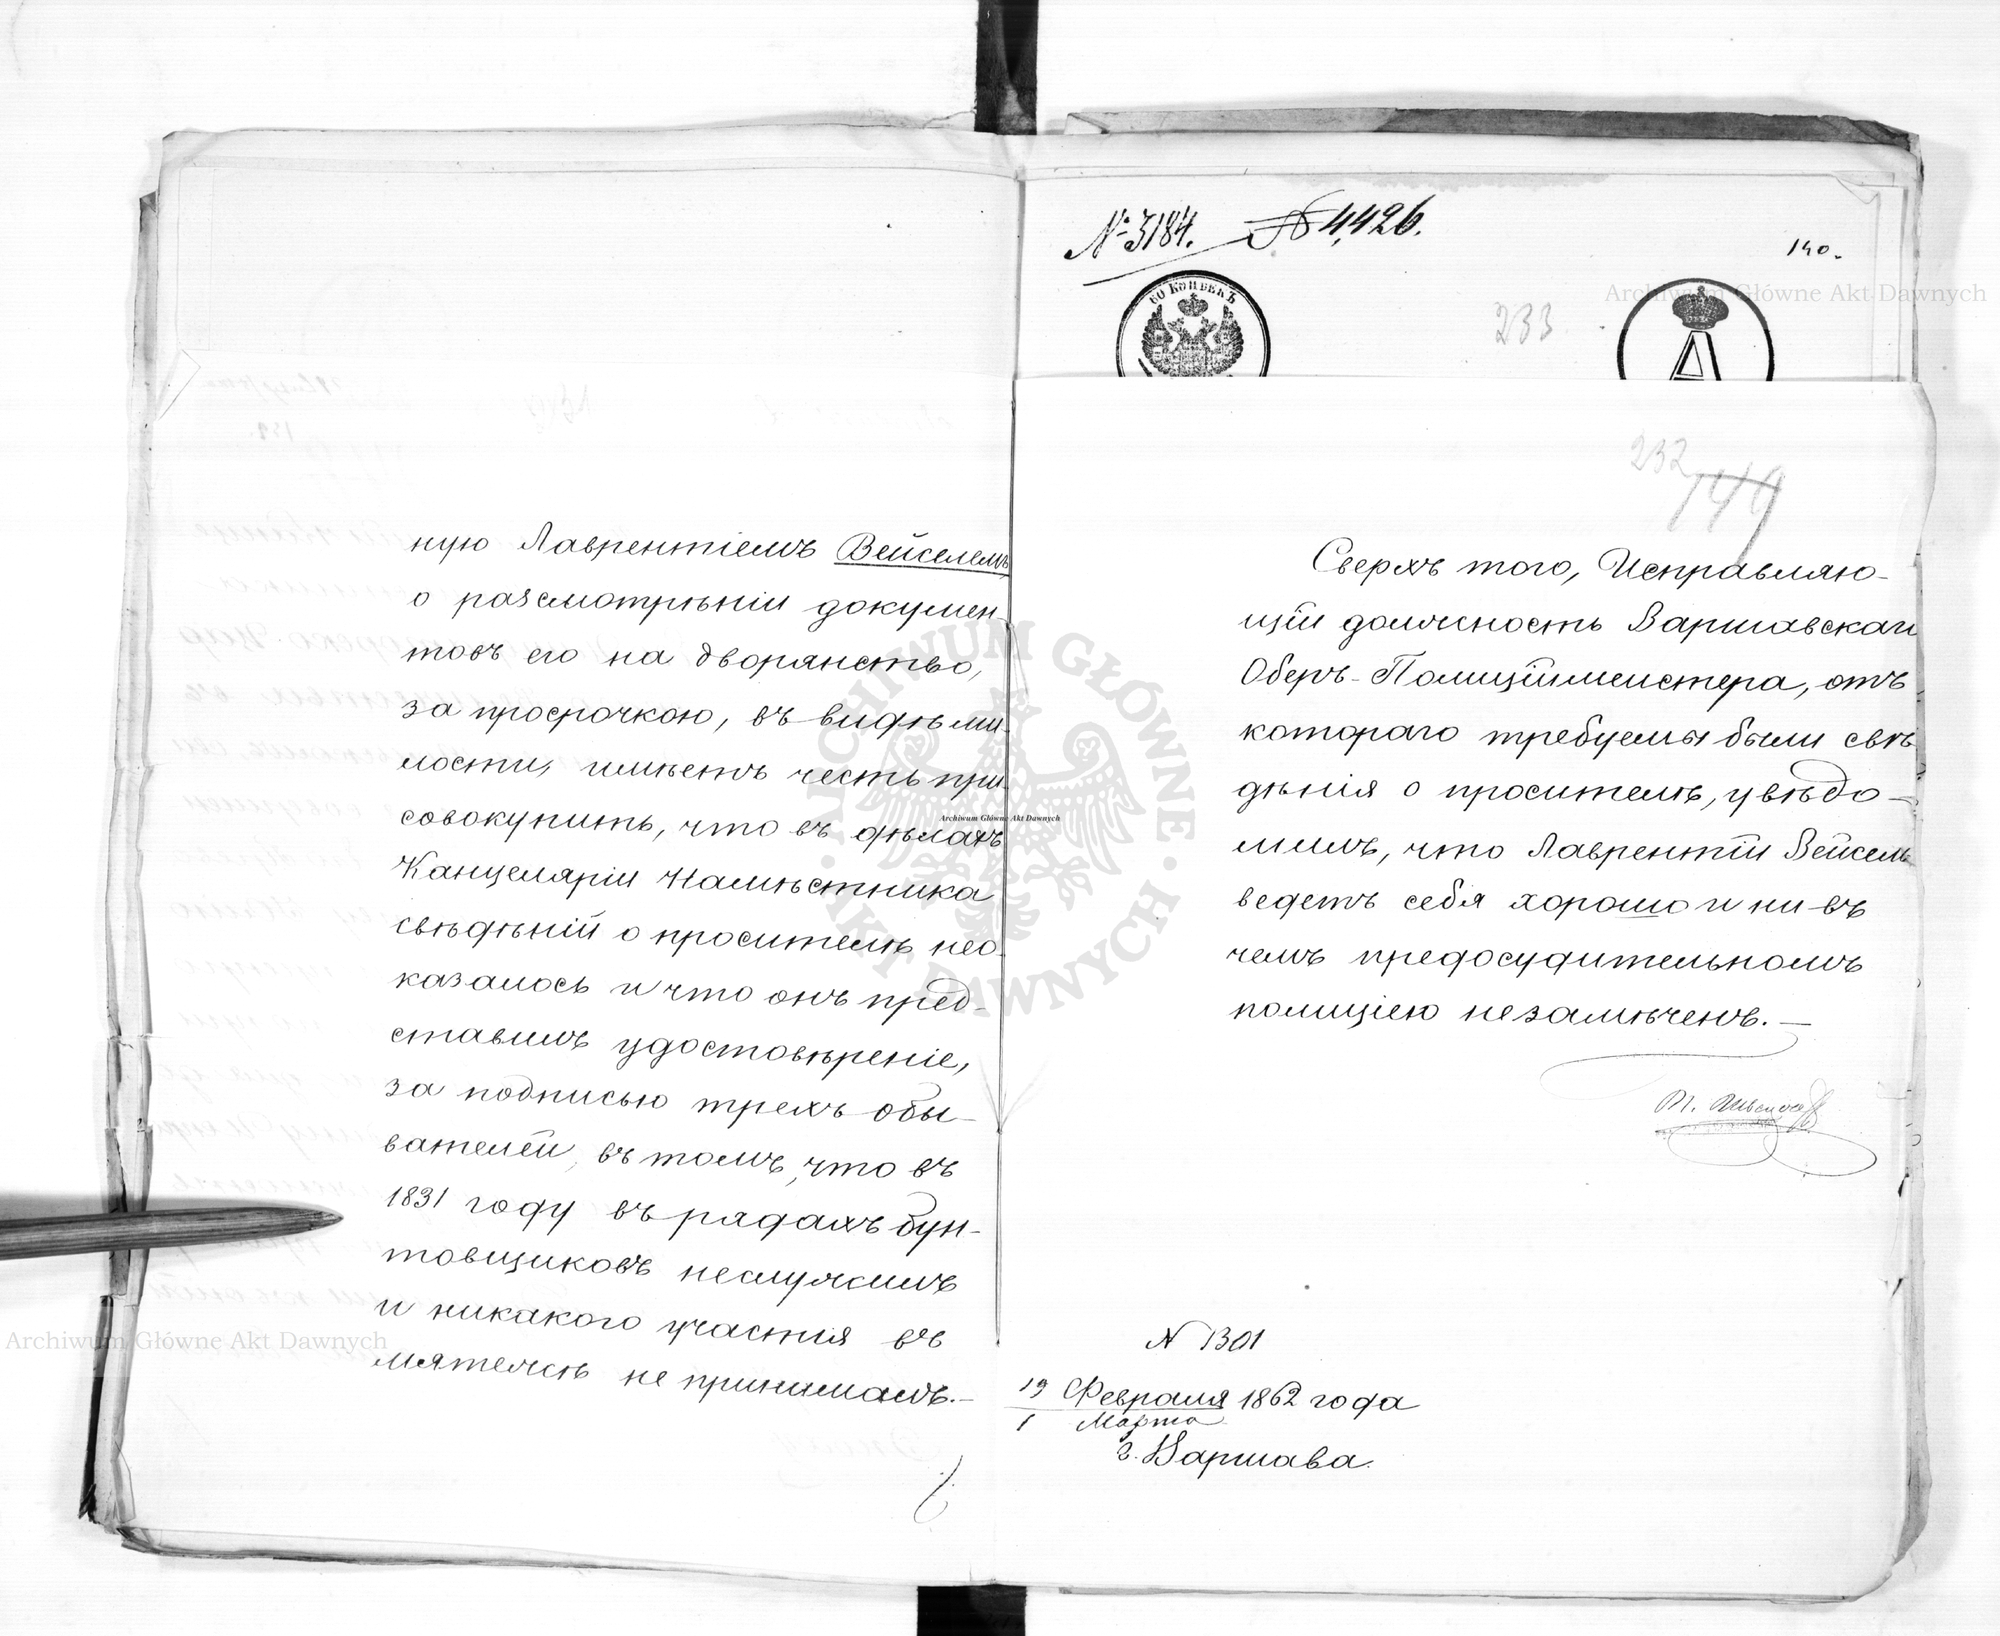 ную Лаврентіемъ Вейселемъ
о разсмотрѣніи докумен-
товъ его на дворянство,
за просрочкою, въ видѣ ми-
лости, имѣетъ честь при-
совокупить, что въ дѣлахъ
Канцеляріи Намѣстника
свѣдѣній о просителѣ нео-
казалось и что онъ пред-
ставилъ удостовѣреніе,
за подписью трехъ обы-
вателей, въ томъ, что въ
1831 году въ рядахъ бун-
товщиковъ неслужилъ
и никакого участія въ
мятежѣ не принималъ.—
№ 3184. № 4,426.
140.
60 КОПѢЕКЪ
233
А
232
149
Сверхъ того, Исправляю-
щій должность Варшавскаго
Оберъ-Полиціймейстера, отъ
котораго требуемы были свѣ-
дѣнія о просителѣ, увѣдо-
милъ, что Лаврентій Вейсель
ведетъ себя хорошо и ни въ
чемъ предосудительномъ
полиціею незамѣченъ.—
N 1301
19 Февраля 1862 года
1 Марта
г. Варшава.
Archiwum Główne Akt Dawnych
Archiwum Główne Akt Dawnych
Archiwum Główne Akt Dawnych
ARCHIWUM GŁÓWNE AKT DAWNYCH